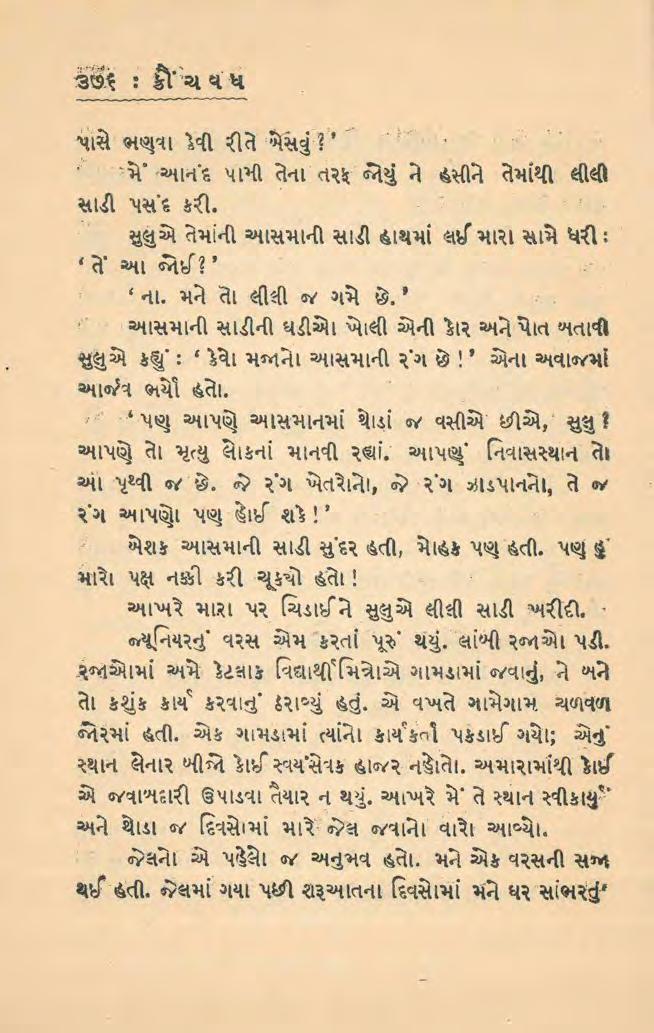 ૩૭૬ : ક્રૌંચવધ
પાસે ભણવા કેવી રીતે બેસવું?’
મેં આનંદ પામી તેના તરફ જોયું ને હસીને તેમાંથી લીલી
સાડી પસંદ કરી.
સુલુએ તેમાંની આસમાની સાડી હાથમાં લઈ મારા સામે ધરી :
‘તેં આ જોઈ?’
‘ના. મને તો લીલી જ ગમે છે.’
આસમાની સાડીની ઘડીઓ ખોલી એની કોર અને પોત બતાવી
સુલુએ કહ્યું : ‘કેવો મજાનો આસમાની રંગ છે !’ એના અવાજમાં
આર્જવ ભર્યો હતો.
‘પણ આપણે આસમાનમાં થોડાં જ વસીએ છીએ, સુલુ ?
આપણે તો મૃત્યુ લોકનાં માનવી રહ્યાં. આપણું નિવાસસ્થાન તો
આ પૃથ્વી જ છે. જે રંગ ખેતરોનો, જે રંગ ઝાડપાનનો, તે જ
રંગ આપણો પણ હોઈ શકે !’
બેશક આસમાની સાડી સુંદર હતી, મોહક પણ હતી. પણ હું
મારો પક્ષ નક્કી કરી ચૂક્યો હતો !
આખરે મારા પર ચિડાઈને સુલુએ લીલી સાડી ખરીદી.
જ્યૂનિયરનું વરસ એમ કરતાં પૂરું થયું. લાંબી રજાઓ પડી.
રજાઓમાં અમે કેટલાક વિદ્યાર્થીમિત્રોએ ગામડામાં જવાનું, ને બને
તો કશુંક કાર્ય કરવાનું ઠરાવ્યું હતું. એ વખતે ગામેગામ ચળવળ
જોરમાં હતી. એક ગામડામાં ત્યાંનો કાર્યકર્તા પકડાઈ ગયો; એનું
સ્થાન લેનાર બીજો કોઈ સ્વયંસેવક હાજર નહોતો. અમારામાંથી કોઈ
એ જવાબદારી ઉપાડવા તૈયાર ન થયું. આખરે મેં તે સ્થાન સ્વીકાર્યું
અને થોડા જ દિવસોમાં મારે જેલ જવાનો વારો આવ્યો.
જેલનો એ પહેલો જ અનુભવ હતો. મને એક વરસની સજા
થઈ હતી. જેલમાં ગયા પછી શરૂઆતના દિવસોમાં મને ઘર સાંભરતું